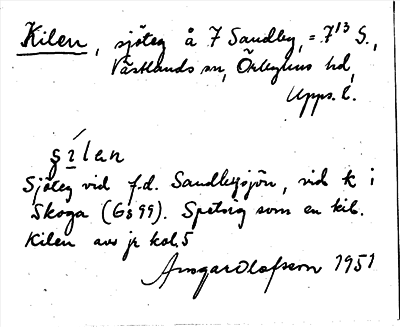 Kilen, sjöteg å 7 Sandby, = 7¹³ S.,
Västlands sn, Örbyhus hd,
Upps. l.
Sjöteg vid f.d. Sandbysjön, vid k i
Skoga (Gs 99). Spetsig som en kil.
Kilen av jr kol. 5
Ansgar Olafsson 1951